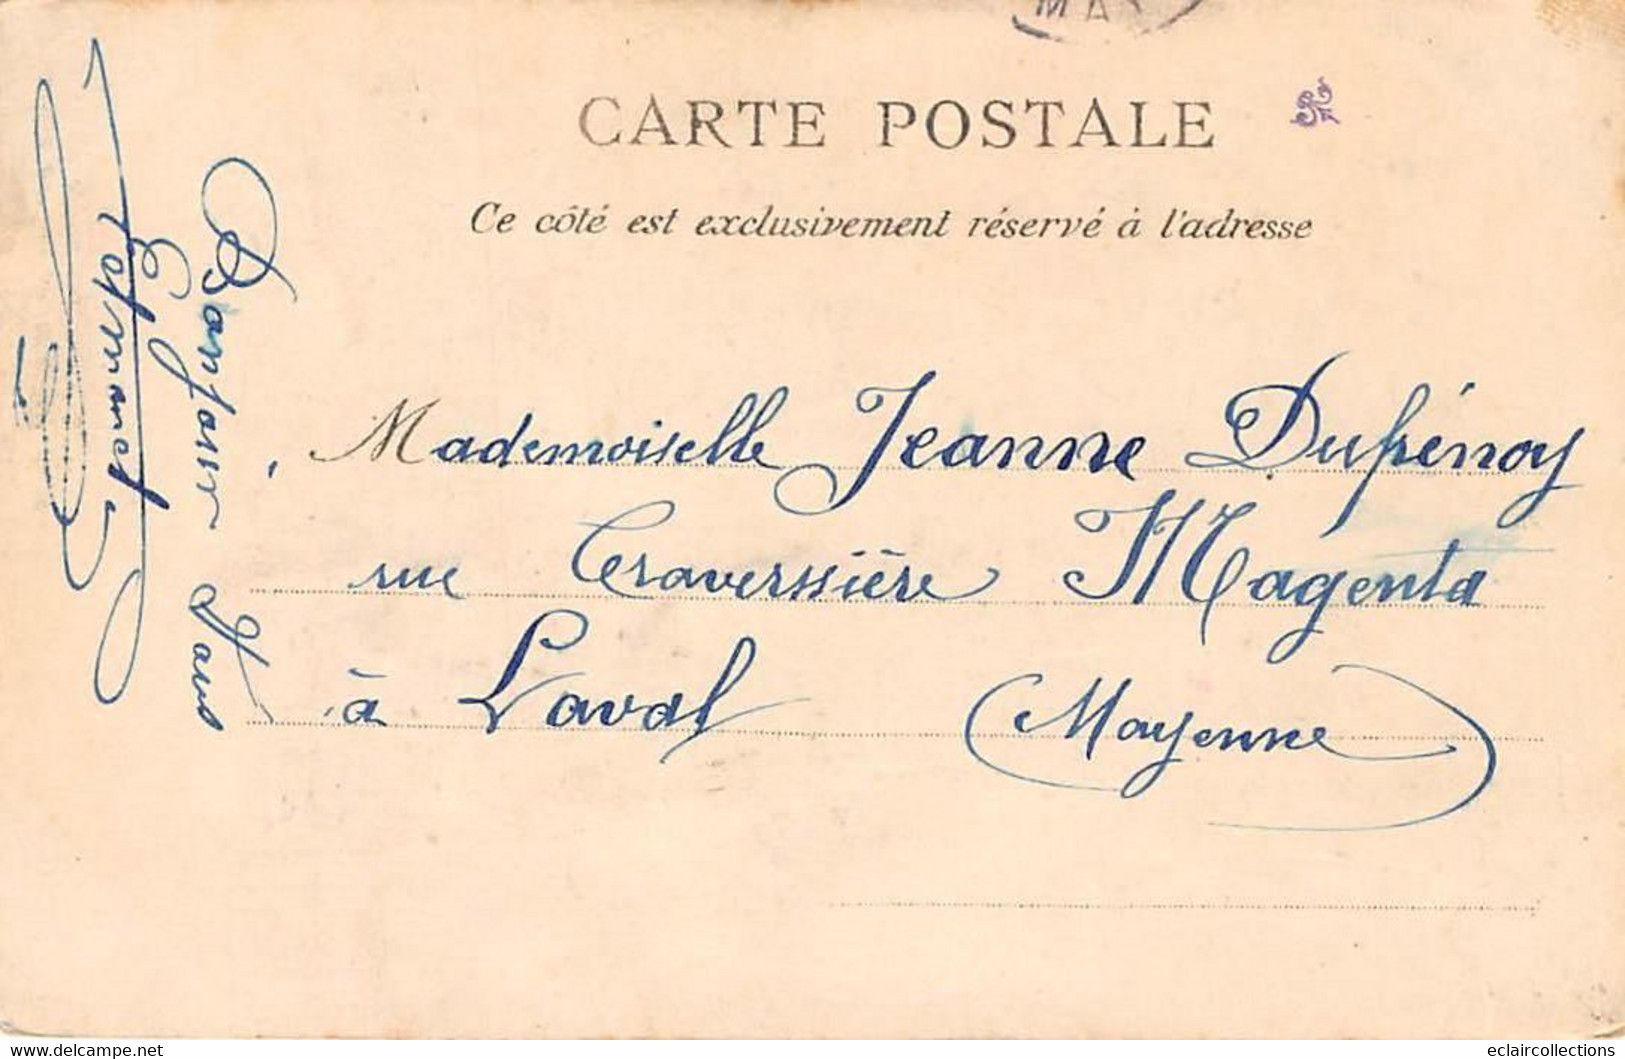 MA
CARTE POSTALE
Ce côté est exclusivement réservé à l'adresse
Mademoiselle Jeanne Dufrénoy
rue Traverssière Magenta
à Laval (Mayenne)
Bonjour
delcampe.net
eclaircollections